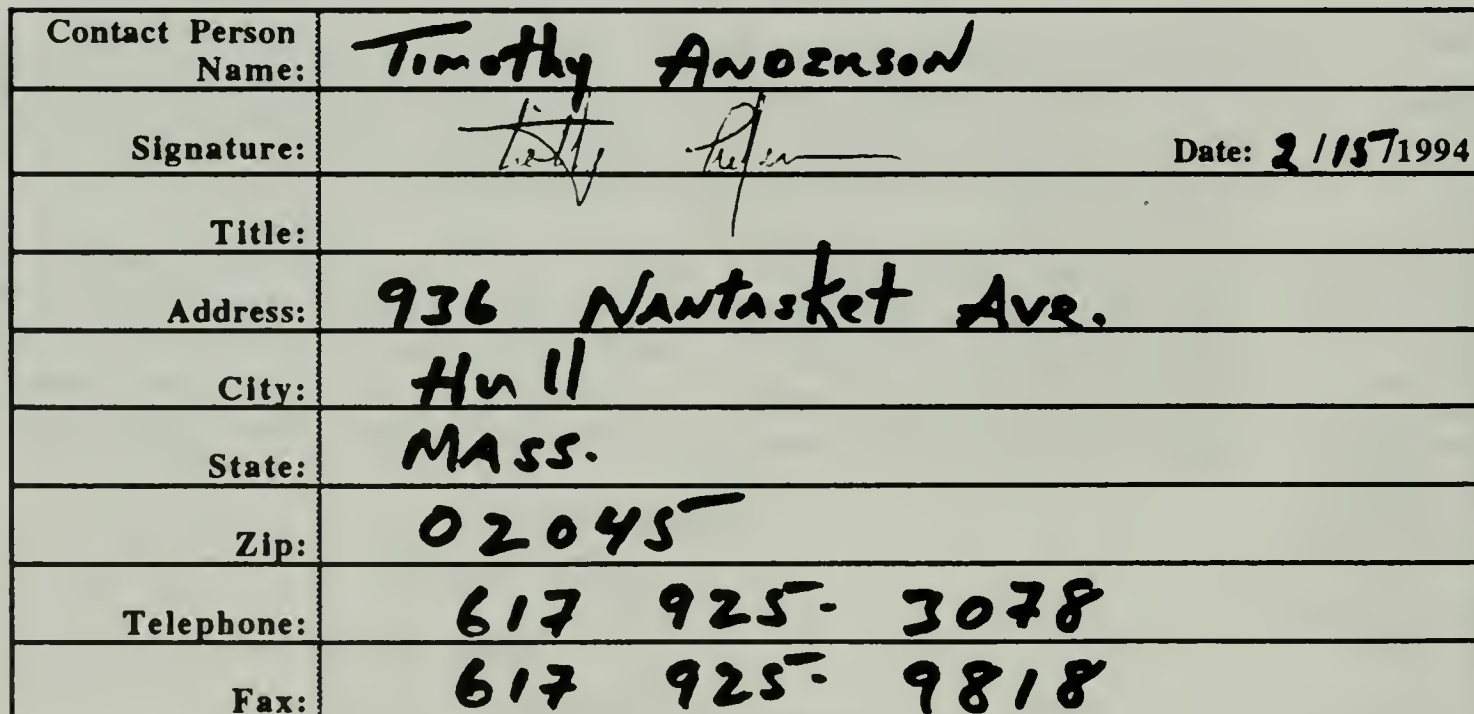 Contact Person
Name: Timothy ANDERSON
Signature: Date: 2/15/1994
Title:
Address: 936 Nantasket Ave.
City: Hull
State: MASS.
Zip: 02045
Telephone: 617 925-3078
Fax: 617 925-9818